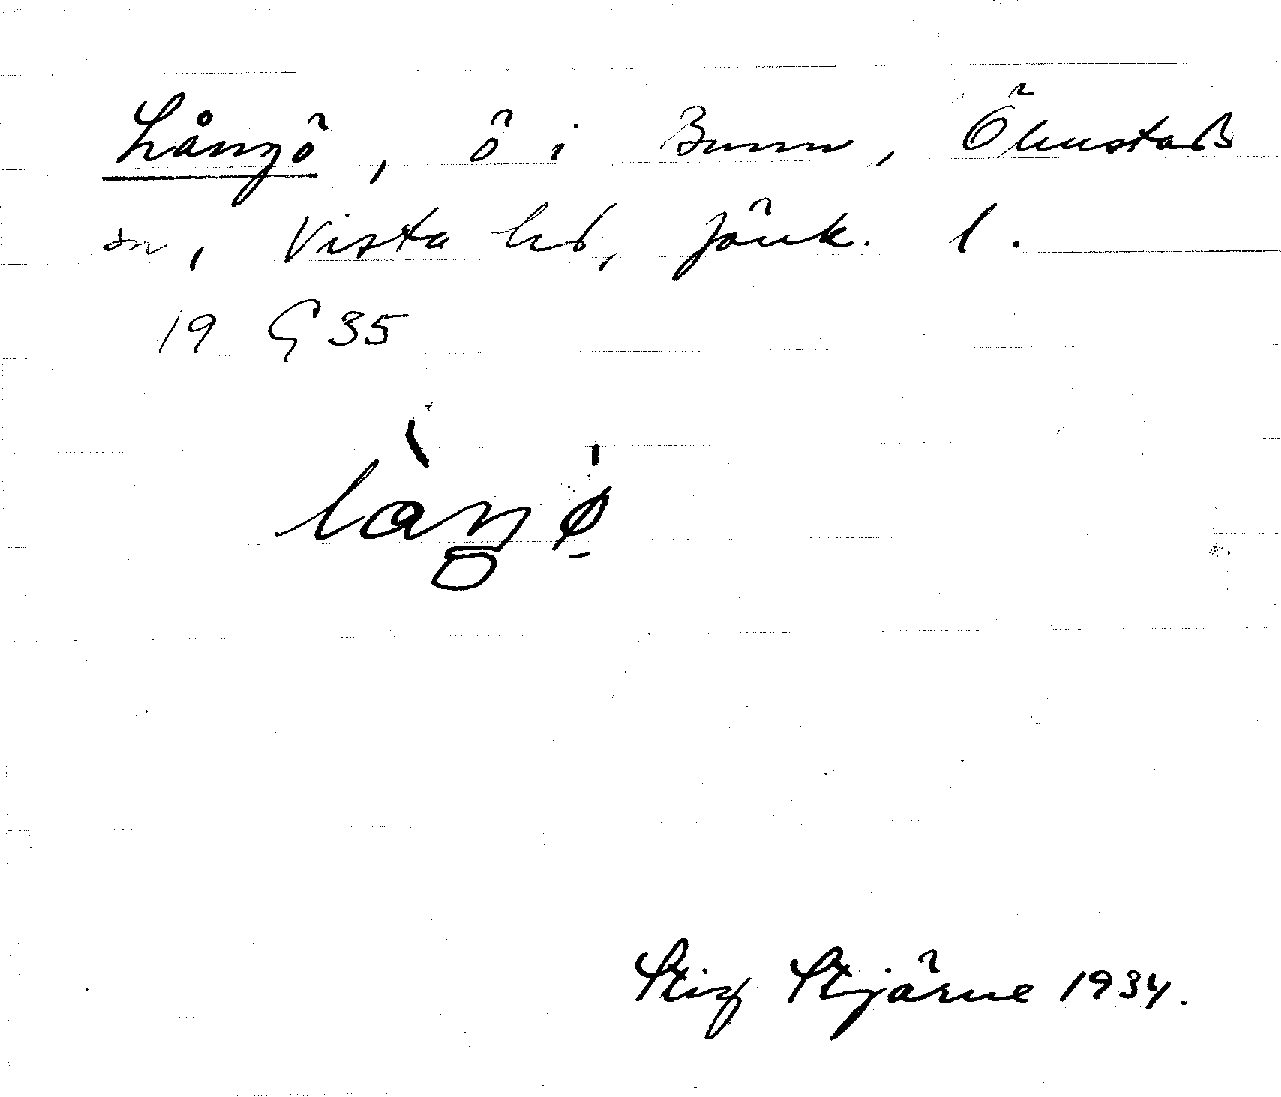 Långö, ö i Bunn, Ölmstads
sn, Vista hd, Jönk. l.
19 G 35
Stig Stjärne 1934.